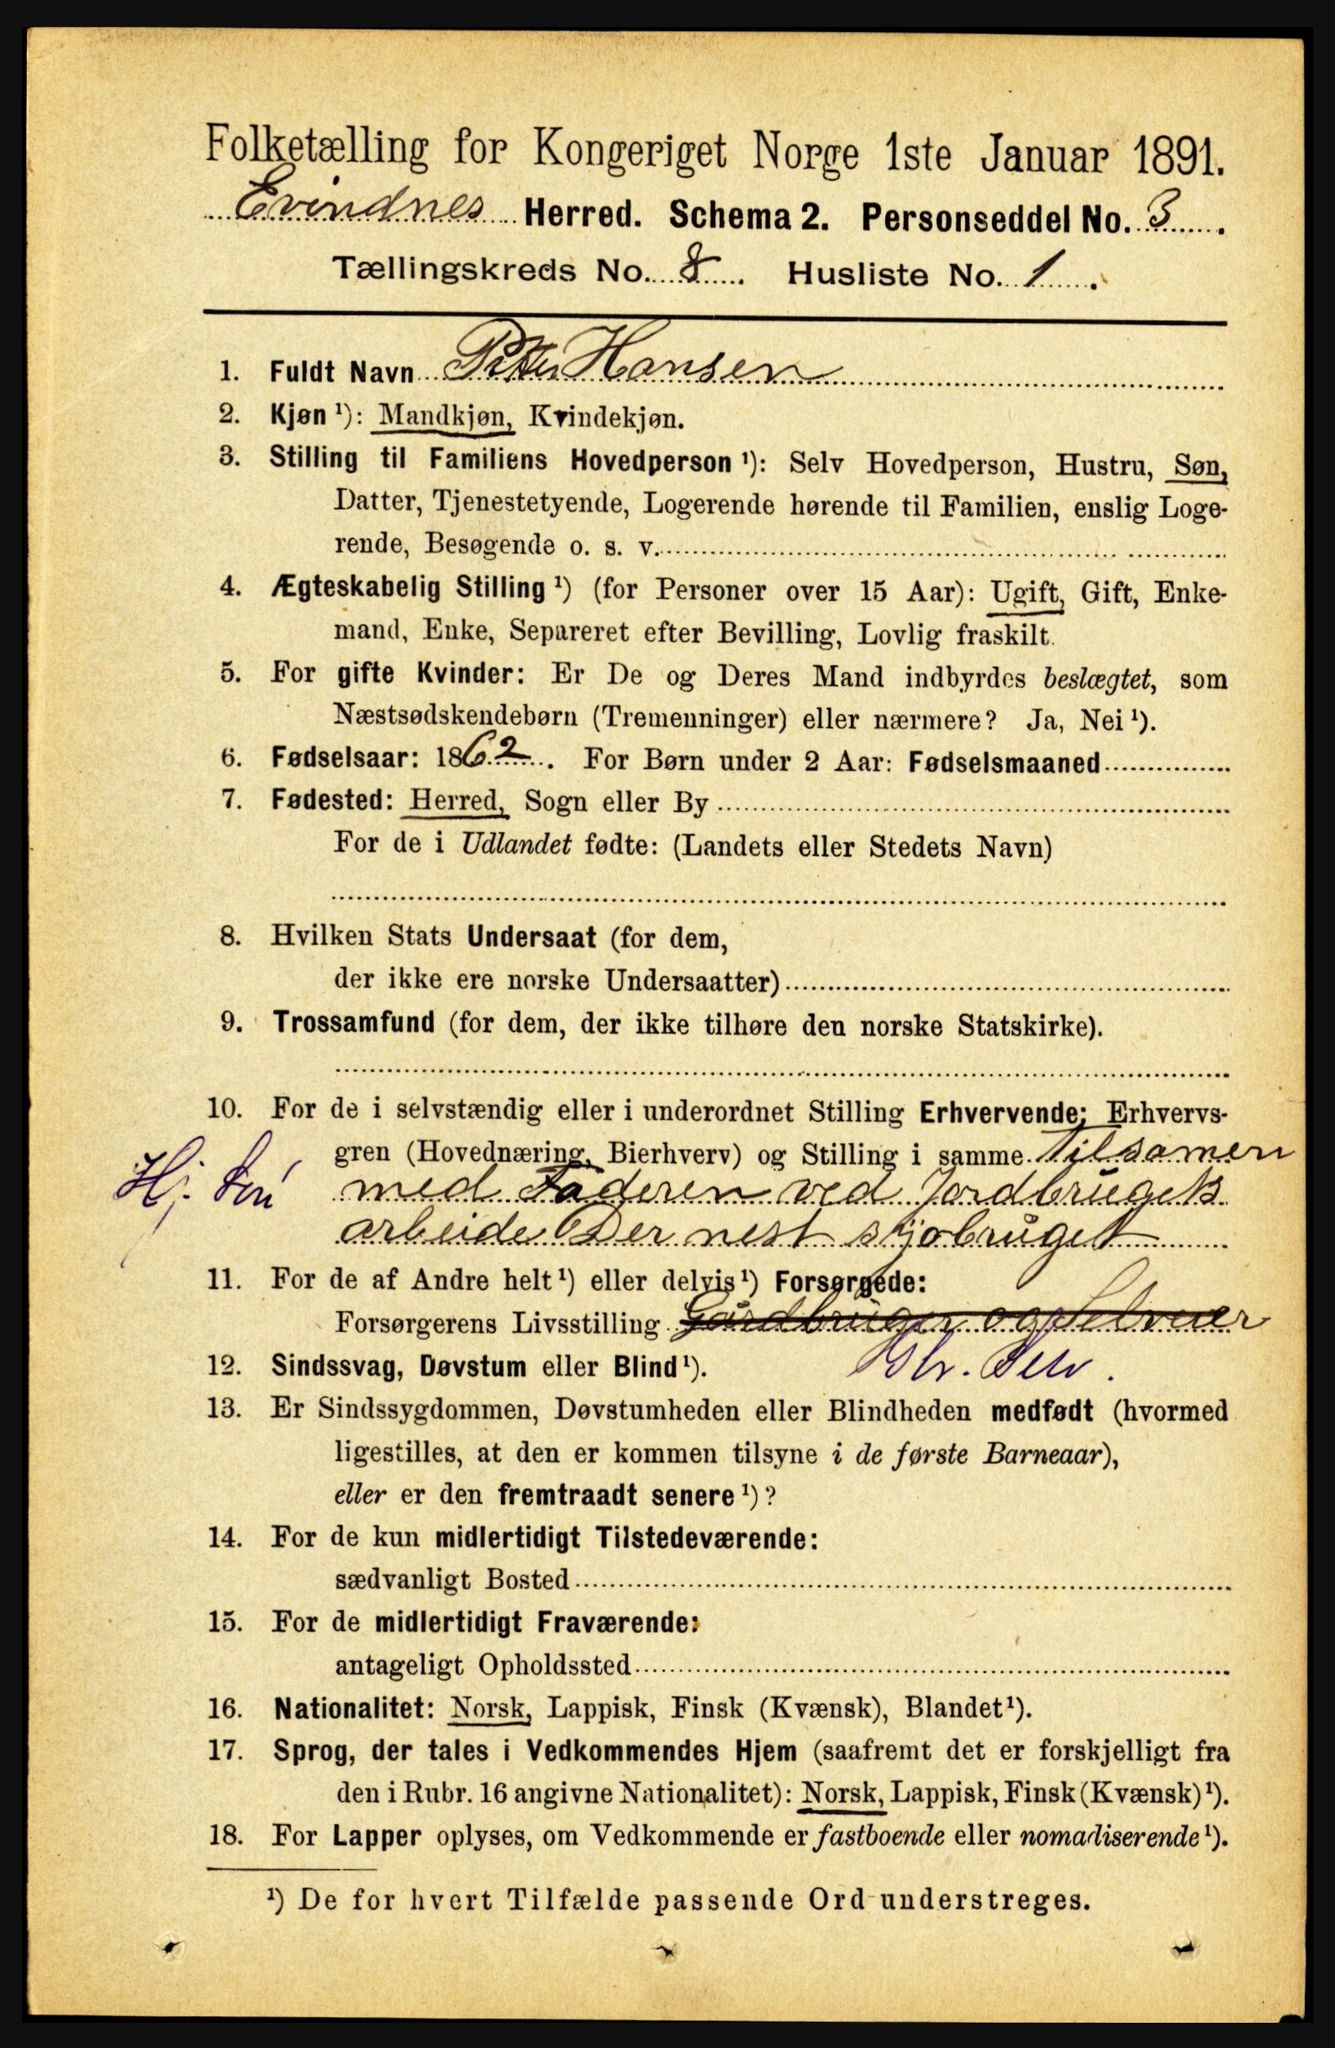 Folketælling for Kongeriget Norge 1ste Januar 1891.
Evindnes Herred. Schema 2. Personseddel No. 3.
Tællingskreds No. 8. Husliste No. 1.
1. Fuldt Navn Peter Hansen
2. Kjøn ¹): Mandkjøn, Kvindekjøn.
3. Stilling til Familiens Hovedperson ¹): Selv Hovedperson, Hustru, Søn,
Datter, Tjenestetyende, Logerende hørende til Familien, enslig Loge-
rende, Besøgende o. s. v.
4. Ægteskabelig Stilling ¹) (for Personer over 15 Aar): Ugift, Gift, Enke-
mand, Enke, Separeret efter Bevilling, Lovlig fraskilt.
5. For gifte Kvinder: Er De og Deres Mand indbyrdes beslægtet, som
Næstsødskendebørn (Tremenninger) eller nærmere? Ja, Nei ¹).
6. Fødselsaar: 1862. For Børn under 2 Aar: Fødselsmaaned
7. Fødested: Herred, Sogn eller By
For de i Udlandet fødte: (Landets eller Stedets Navn)
8. Hvilken Stats Undersaat (for dem,
der ikke ere norske Undersaatter)
9. Trossamfund (for dem, der ikke tilhøre den norske Statskirke).
10. For de i selvstændig eller i underordnet Stilling Erhvervende: Erhvervs-
gren (Hovednæring, Bierhverv) og Stilling i samme Tilsamen
Hj.
med Faderen ved Jordbrugets
arbeide Der nest sjøbruget
11. For de af Andre helt ¹) eller delvis ¹) Forsørgede:
Forsørgerens Livsstilling Gårdbruger og Selveier
12. Sindssvag, Døvstum eller Blind ¹). Gbr. Selv.
13. Er Sindssygdommen, Døvstumheden eller Blindheden medfødt (hvormed
ligestilles, at den er kommen tilsyne i de første Barneaar),
eller er den fremtraadt senere ¹)?
14. For de kun midlertidigt Tilstedeværende:
sædvanligt Bosted
15. For de midlertidigt Fraværende:
antageligt Opholdssted
16. Nationalitet: Norsk, Lappisk, Finsk (Kvænsk), Blandet ¹).
17. Sprog, der tales i Vedkommendes Hjem (saafremt det er forskjelligt fra
den i Rubr. 16 angivne Nationalitet): Norsk, Lappisk, Finsk (Kvænsk) ¹).
18. For Lapper oplyses, om Vedkommende er fastboende eller nomadiserende ¹).
¹) De for hvert Tilfælde passende Ord understreges.